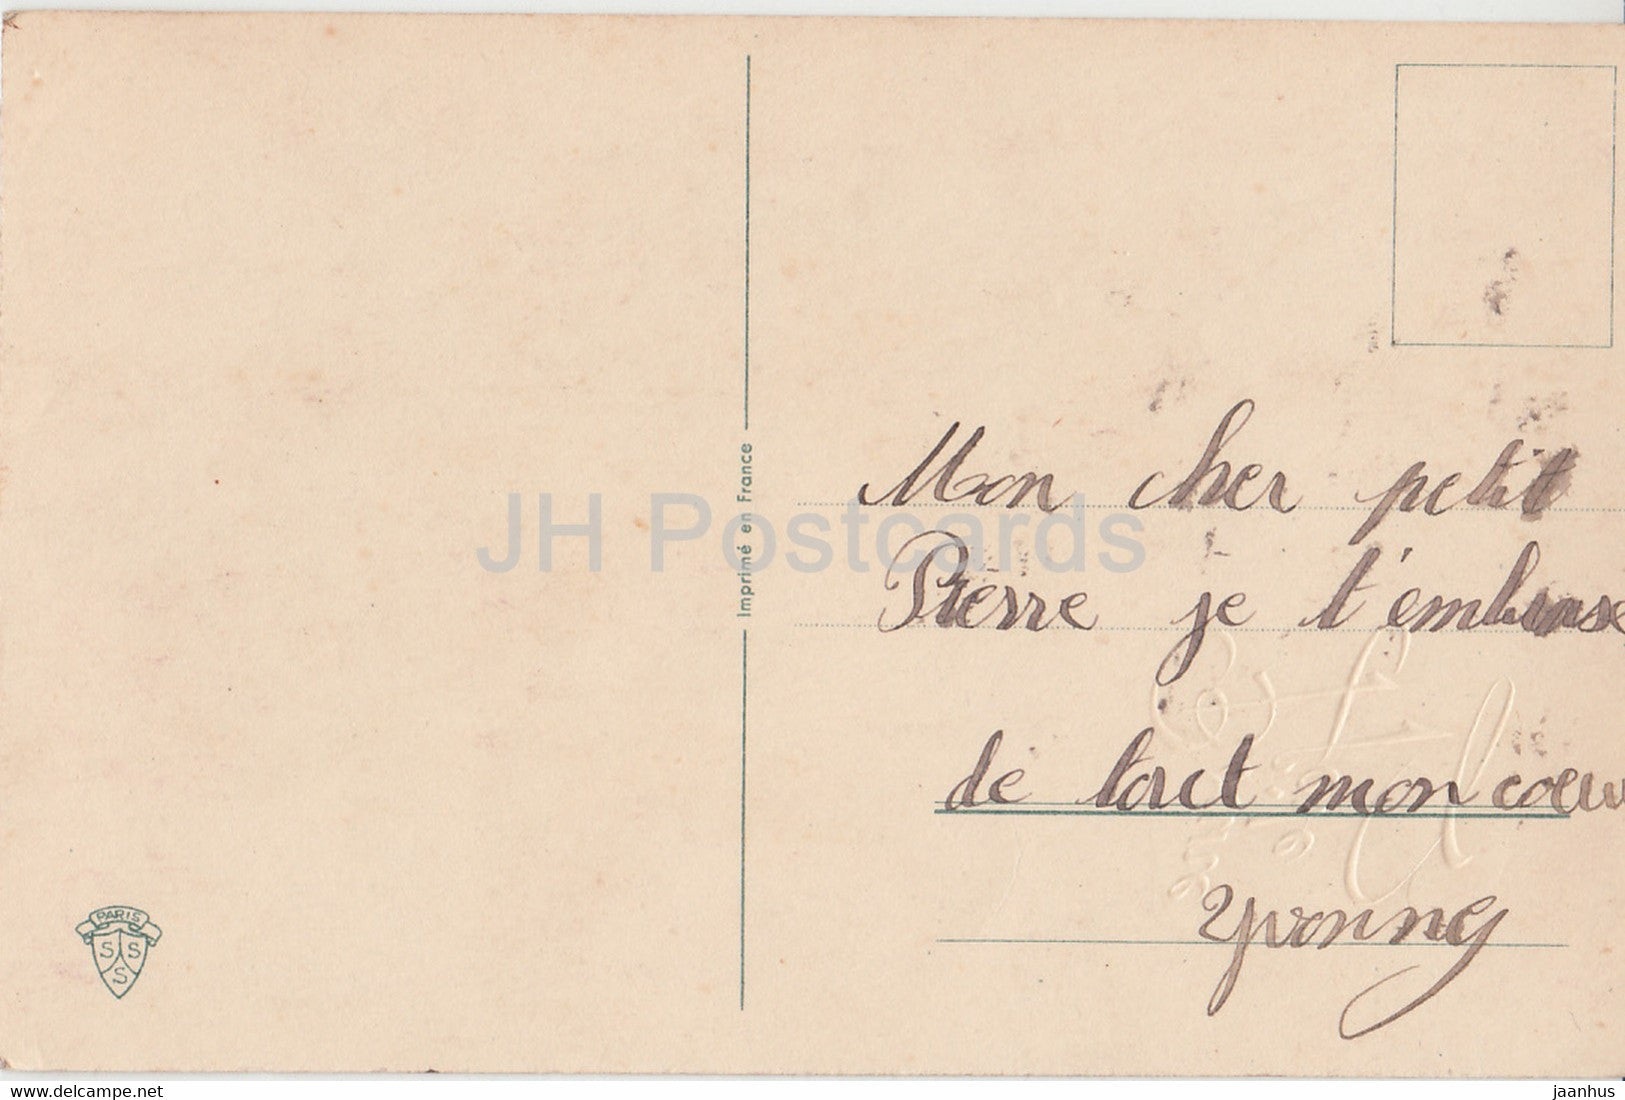 Imprimé en France
JH Postcards
Mon cher petit
Pierre je t'embrasse
de tout mon coeur
Yvonne
PARIS
S S
S
www.delcampe.net
jaanhus